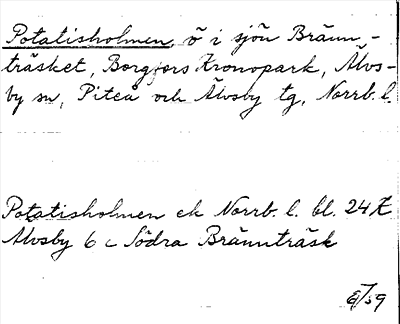 Potatisholmen, ö i sjön Bränn-
träsket, Borgfors Kronopark, Älvs-
by sn, Piteå och Älvsby tg, Norrb. l.
Potatisholmen ek Norrb. l. bl. 24 K
Älvsby 6 c Södra Brännträsk
/59